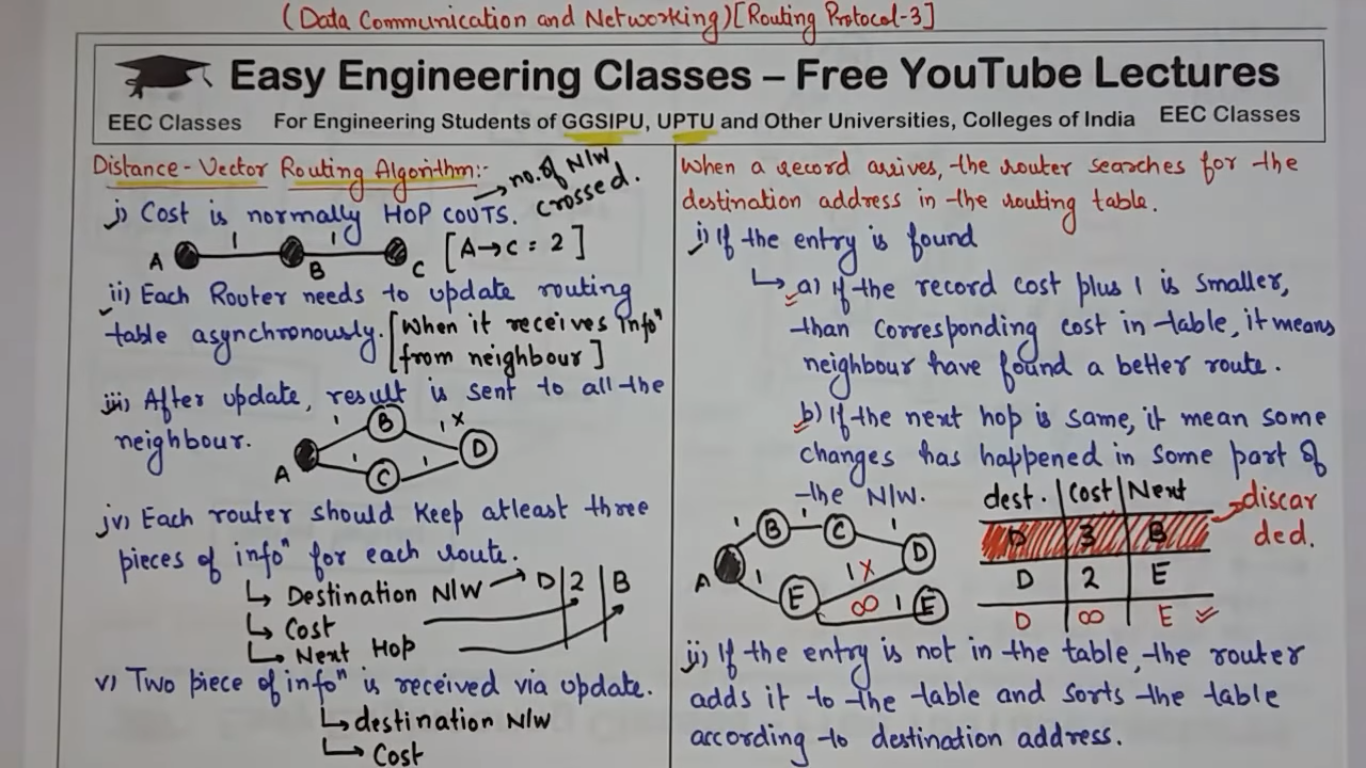 (Data Communication and Networking) [Routing Protocol-3]
Easy Engineering Classes – Free YouTube Lectures
EEC Classes For Engineering Students of GGSIPU, UPTU and Other Universities, Colleges of India EEC Classes
Distance-Vector Routing Algorithm:-
→ no. of N/W
crossed.
i) Cost is normally HOP COUTS.
A 1 B 1 C [A→C = 2]
ii) Each Router needs to update routing
table asynchronously. [When it receives infoⁿ
from neighbour]
iii) After update, result is sent to all the
neighbour.
A 1 B 1 x D
1 C 1
iv) Each router should keep atleast three
pieces of infoⁿ for each route.
↳ Destination N/W → D | 2 | B
↳ Cost
↳ Next Hop
v) Two piece of infoⁿ is received via update.
↳ destination N/W
↳ Cost
When a record arrives, the router searches for the
destination address in the routing table.
i) If the entry is found
↳ a) if the record cost plus 1 is smaller,
than corresponding cost in table, it means
neighbour have found a better route.
b) If the next hop is same, it mean some
changes has happened in some part of
the N/W.
A 1 B 1 C 1 D
1 E 1 x
∞ 1 E
dest. | Cost | Next
D 3 B → discar
ded.
D 2 E
D ∞ E ✓
ii) If the entry is not in the table, the router
adds it to the table and sorts the table
according to destination address.